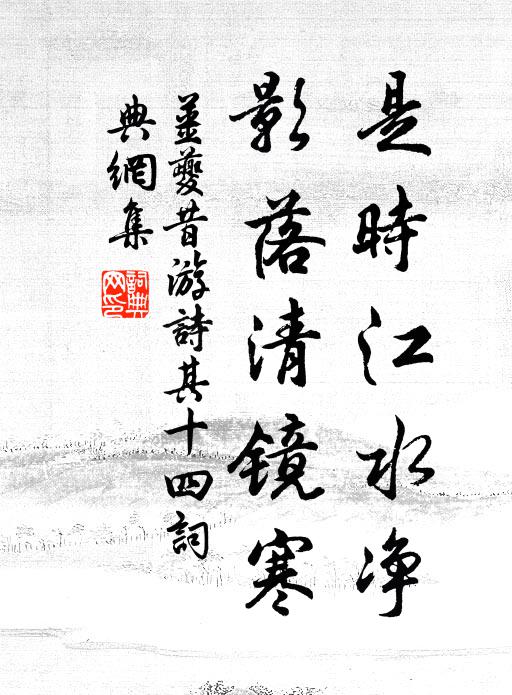 是時江水净
影落清鏡寒
姜夔昔游詩其十四詞
典網集
詞典網印